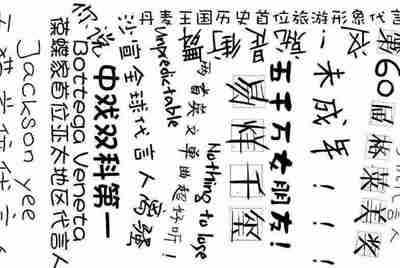 丹麦王国历史首位旅游形象代言
第60届格莱美奖
这！就是街舞
未成年！！！
五千万女朋友！
易烊千玺
Nothing to lose
两首英文单曲超好听！
Unpredictable
沙宣全球代言人
中戏双科第一
你说
Bottega Veneta
葆蝶家首位亚太地区代言人
Jackson yee